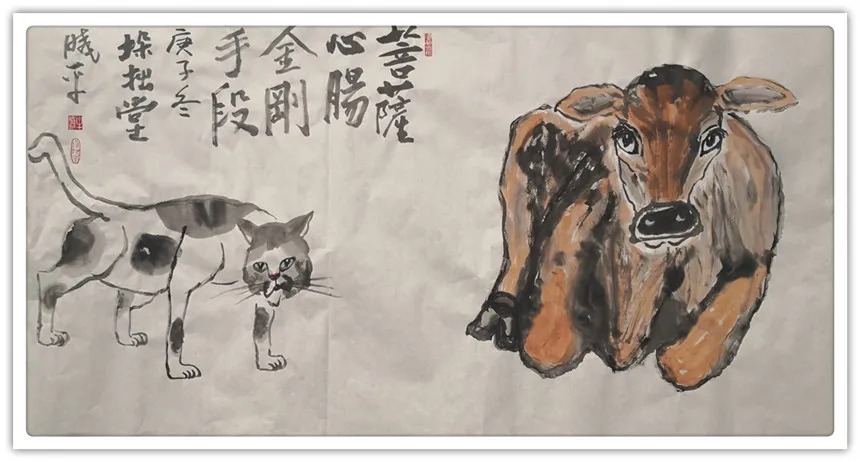 菩薩
心腸
金剛
手段
庚子冬
垛拙堂
晓平